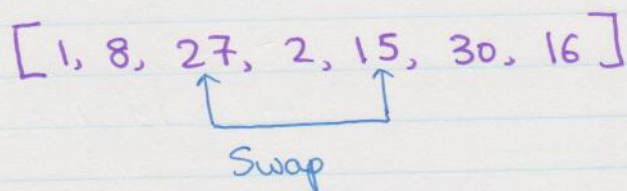 [1, 8, 27, 2, 15, 30, 16]
Swap